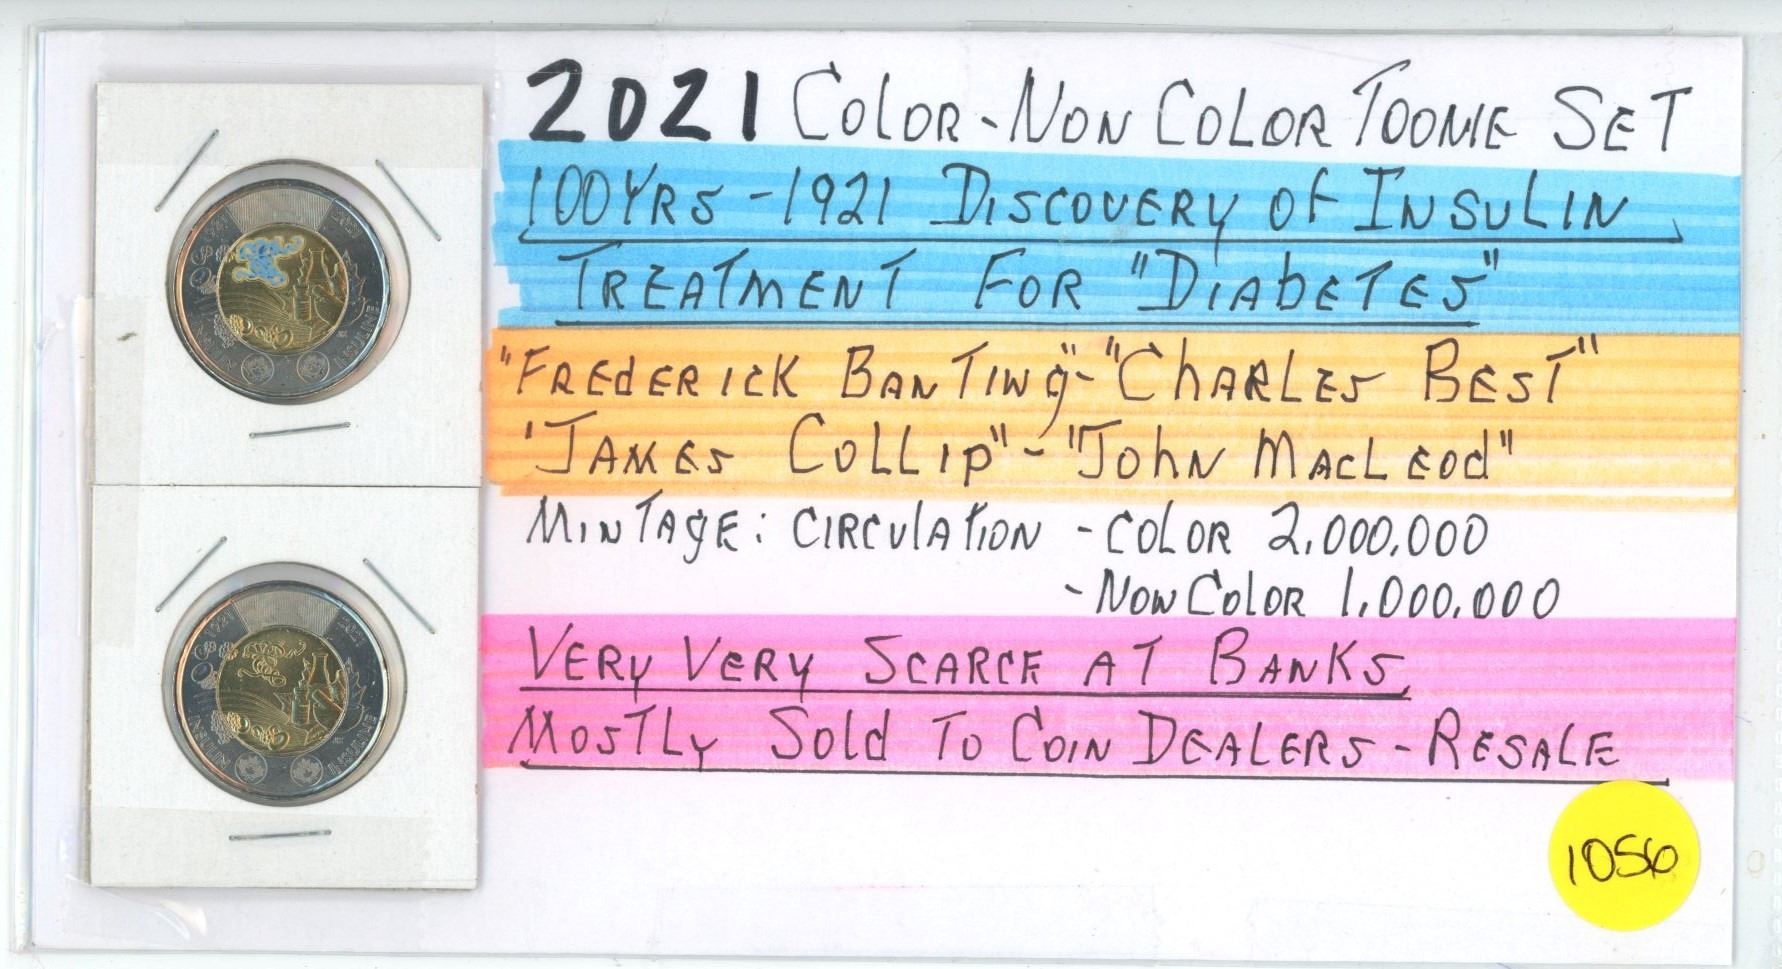 2021 COLOR - NON COLOR TOONIE SET
100YRS - 1921 DISCOVERY OF INSULIN
TREATMENT FOR "DIABETES"
"FREDERICK BANTING" - "CHARLES BEST"
"JAMES COLLIP" - "JOHN MACLEOD"
MINTAGE: CIRCULATION - COLOR 2,000,000
- NON COLOR 1,000,000
VERY VERY SCARCE AT BANKS,
MOSTLY SOLD TO COIN DEALERS - RESALE
1056
1921 2021
INSULINE
1921 2021
INSULIN